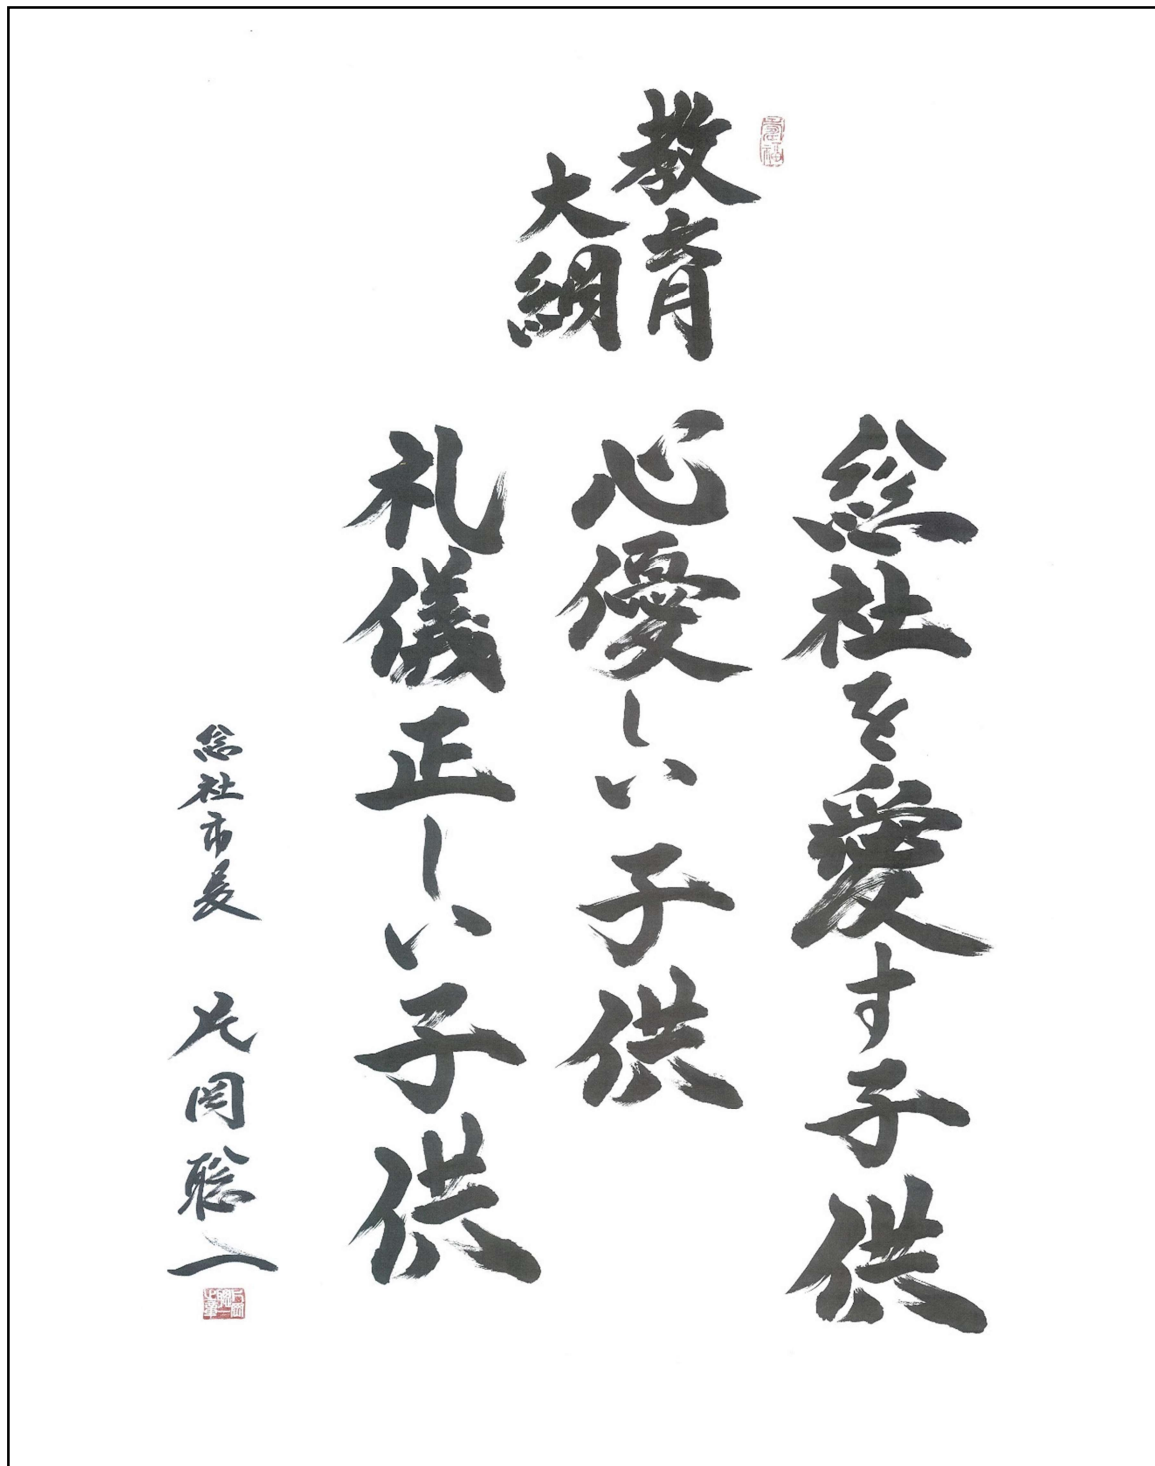 教育
大綱
総社を愛す子供
心優しい子供
礼儀正しい子供
総社市長 片岡聡一